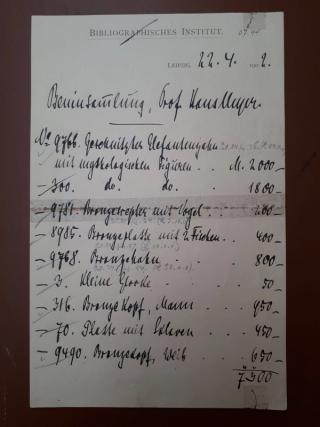 BIBLIOGRAPHISCHES INSTITUT.
LEIPZIG, 22.4. 1902.
Beninsamlung, Prof. Hans Meyer.
No 9766. Geschnitzter Elefantenzahn
mit mythologischen Figuren . . M. 2000 —
— 300. do. do. . 1800 —
— 9781. Bronzescepter mit Vogel . . 200 —
— 8985. Bronzeplatte mit 2 Fischen . . 400 —
— 9768. Bronzehahn . . . 800 —
— 2. Kleine Glocke . . . 50 —
— 316. Bronze Kopf, Mann . . . 950 —
— 70. Platte mit Sklaven . . . 450 —
— 9490. Bronzekopf, Weib . . . 650 —
7300 —